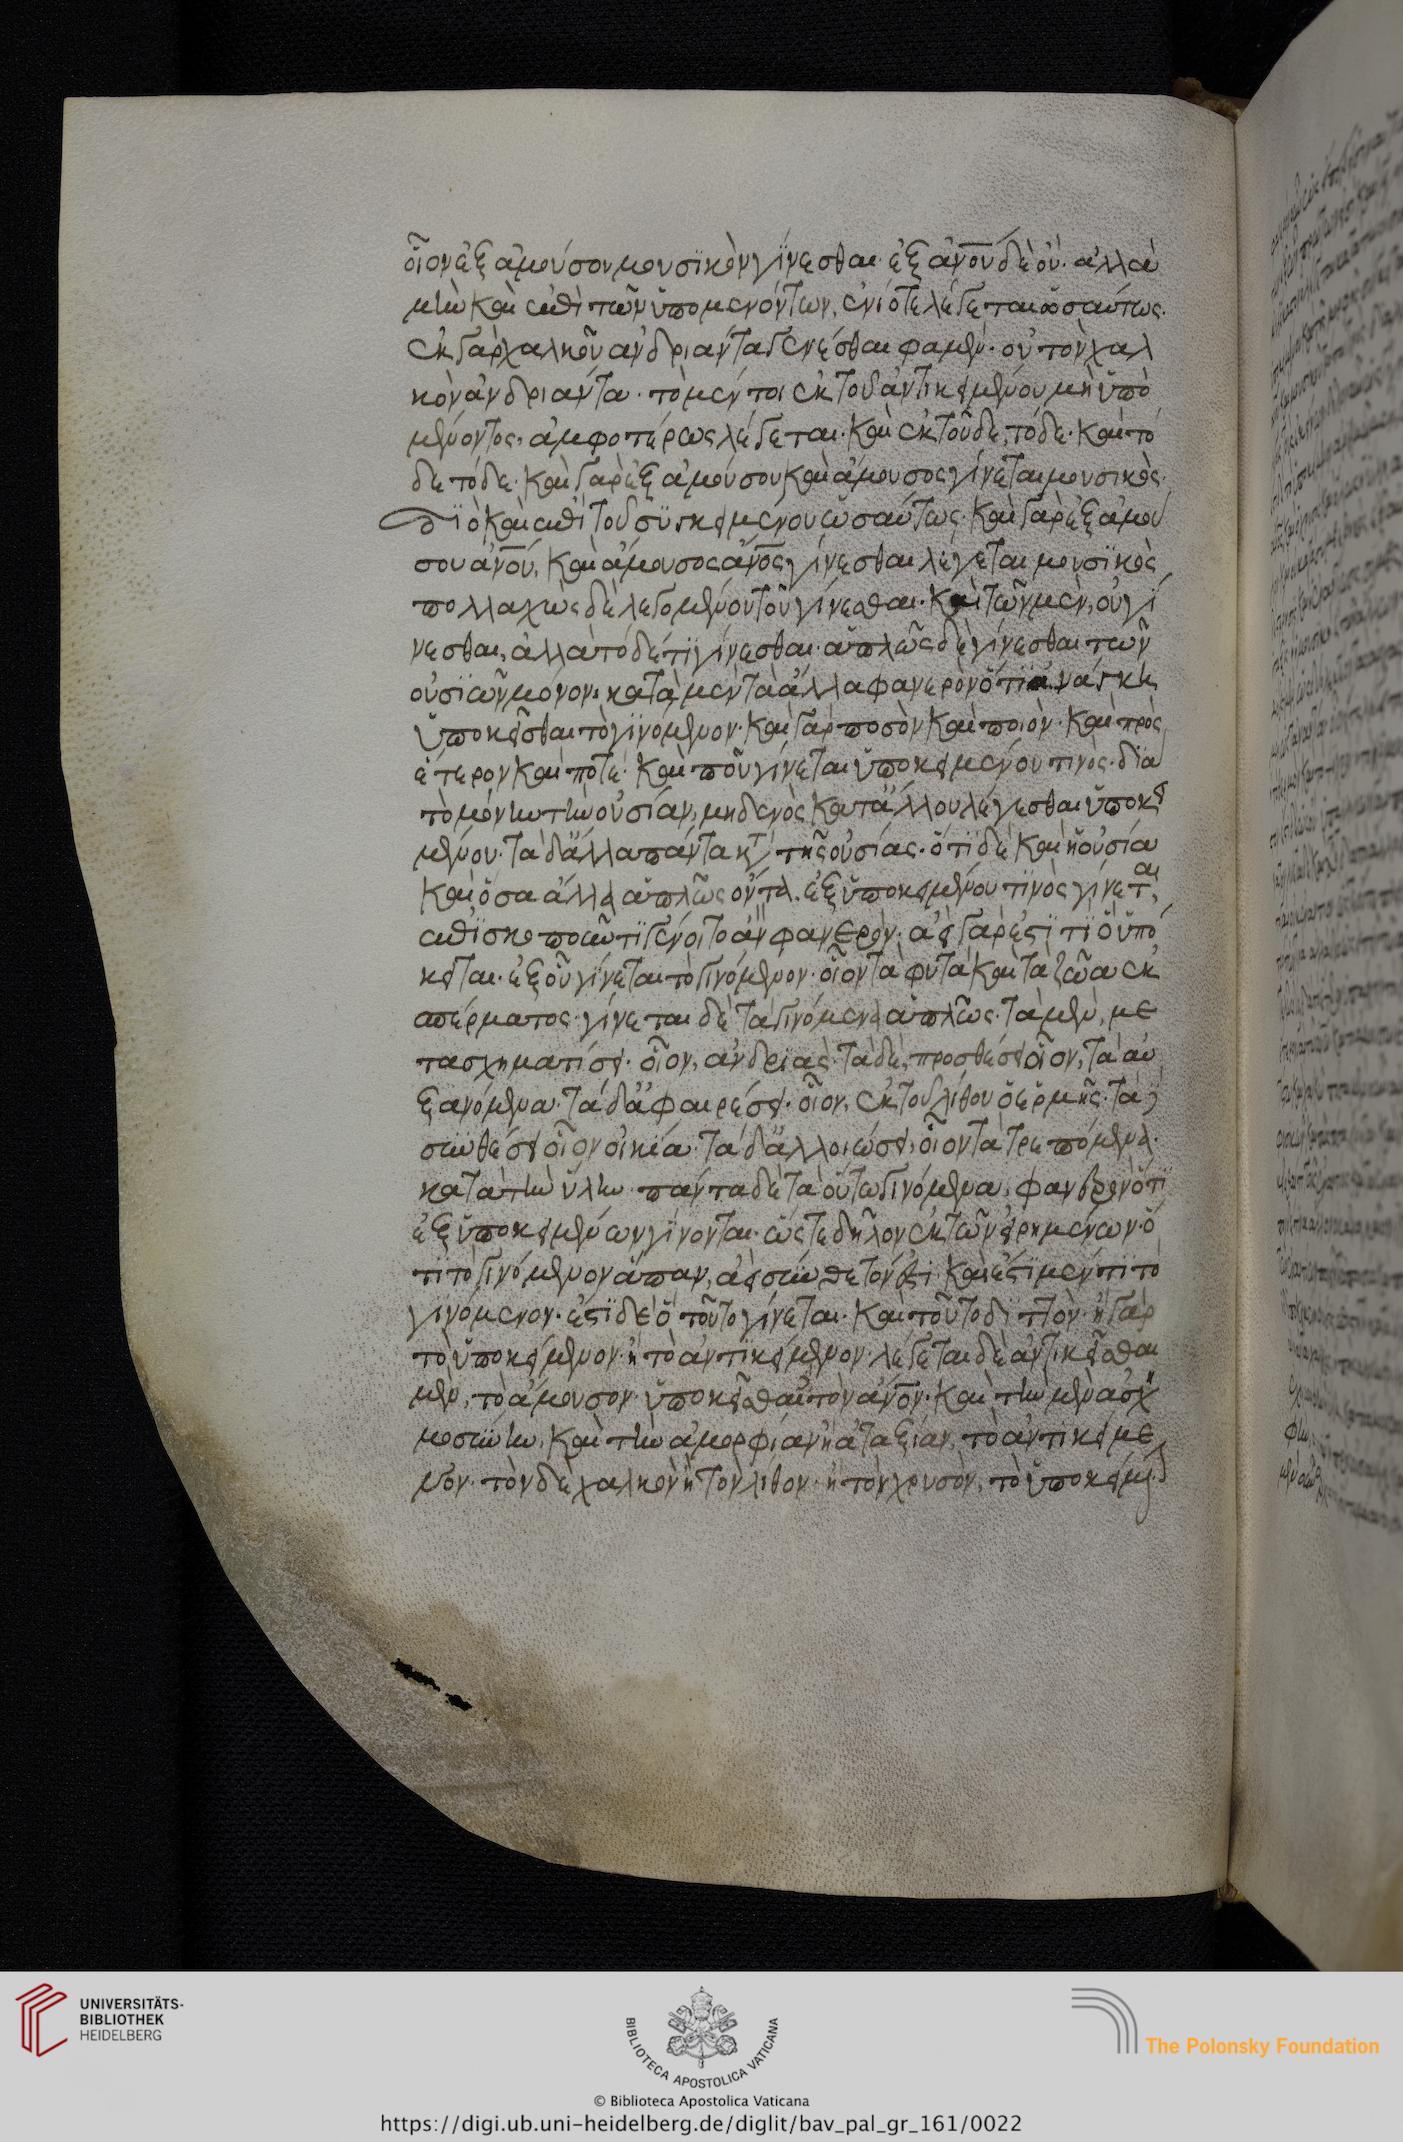 οἷον ἐξ ἀμούσου μουσϊκὸν γίνεσθαι· ἐξ ἀν̅ο̅υ̅ δὲ οὐ· ἀλλὰ
μὴν καὶ ἐπὶ τῶν ὑπομενόντων, ἐνίοτε λέγεται ὡσαύτως·
ἐκ γὰρ χαλκοῦ ἀνδριάντα γενέσθαι φαμὲν· οὐ τὸν χαλ
κὸν ἀνδριάντα· τὸ μέν τοι ἐκ τοῦ ἀντικειμένου μὴ ὑπο
μένοντος, ἀμφοτέρως λέγεται· καὶ ἐκ τοῦδε, τόδε· καὶ τό
δε τόδε· καὶ γὰρ ἐξ ἀμούσου καὶ ἄμουσος γίνεται μουσικὸς·
δϊὸ καὶ ἐπὶ τοῦ συγκειμένου ὡσαύτως· καὶ γὰρ ἐξ ἀμού
σου ἀν̅ο̅υ̅, καὶ ἄμουσος ἄν̅ο̅ς̅ γίνεσθαι λέγεται μουσϊκὸς
πολλαχῶς δὲ λεγομένου τοῦ γίνεσθαι· καὶ τῶν μὲν, οὐ γί
νεσθαι, ἀλλὰ τόδέ τϊ γίνεσθαι· ἁπλῶς δὲ γίνεσθαι τῶν
οὐσϊῶν μόνον· κατὰ μὲν τὰ ἄλλα φανερὸν ὅτϊ ἀνάγκη
ὑποκεῖσθαι τὸ γϊνόμενον· καὶ γὰρ ποσὸν καὶ ποιὸν· καὶ πρὸς
ἕτερον καὶ ποτὲ· καὶ ποῦ γίνεται ὑποκειμένου τινὸς· δϊὰ
τὸ μόνην τὴν οὐσίαν, μηδενὸς κατ' ἄλλου λέγεσθαι ὑποκει
μένου· τὰ δ' ἄλλα πάντα κτ̀ τῆς οὐσίας· ὅτϊ δὲ καὶ ἡ οὐσία
καὶ ὅσα ἄλλα ἁπλῶς ὄντα, ἐξ ὑποκειμένου τϊνὸς γίνεται,
ἐπϊσκοποῦντϊ γένοιτο ἂν φανερὸν· ἀεὶ γὰρ ἔστϊ τϊ ὃ ὑπό
κειται· ἐξ οὗ γίνεται τὸ γινόμενον· οἷον τὰ φυτὰ καὶ τὰ ζῶα ἐκ
σπέρματος· γίνεται δὲ τὰ γινόμενα ἁπλῶς· τὰ μὲν, με
τασχηματίσει· οἷον, ἀνδριὰς· τὰ δὲ, προσθέσει οἷον, τὰ αὐ
ξανόμενα· τὰ δ' ἀφαιρέσει· οἷον, ἐκ τοῦ λίθου ὁ ἑρμῆς· τὰ δὲ
συνθέσει οἷον οἰκία· τὰ δ' ἀλλοιώσει, οἷον τὰ τρεπόμενα·
κατὰ τὴν ὕλην· πάντα δὲ τὰ οὕτω γινόμενα, φανερὸν ὅτϊ
ἐξ ὑποκειμένων γίνονται· ὥστε δῆλον ἐκ τῶν εἰρημένων· ὅ
τι τὸ γινόμενον ἅπαν, ἀεὶ συνθετόν ἐστι· καὶ ἔστϊ μέν τϊ τὸ
γινόμενον· ἔστϊ δὲ ὃ τοῦτο γίνεται· καὶ τοῦτο διττὸν· ἢ γὰρ
τὸ ὑποκείμενον· ἢ τὸ ἀντϊκείμενον· λέγεται δὲ ἀντικεῖσθαι
μὲν, τὸ ἄμουσον· ὑποκεῖσθαι τὸν ἄν̅ο̅ν̅· καὶ τὴν μὲν ἀσχη
μοσύνην, καὶ τὴν ἀμορφίαν ἢ ἀταξίαν, τὸ ἀντικείμε
νον· τὸν δὲ χαλκὸν ἢ τὸν λίθον· ἢ τὸν χρυσὸν, τὸ ὑποκείμενον·
UNIVERSITÄTS-
BIBLIOTHEK
HEIDELBERG
BIBLIOTECA APOSTOLICA VATICANA
The Polonsky Foundation
© Biblioteca Apostolica Vaticana
https://digi.ub.uni-heidelberg.de/diglit/bav_pal_gr_161/0022